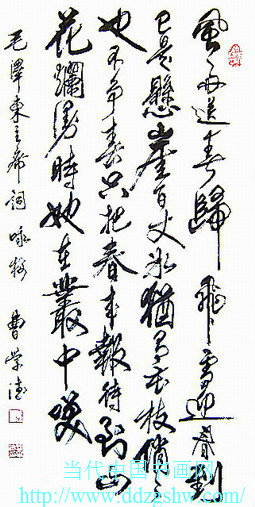 風雨送春歸飛雪迎春到
已是懸崖百丈冰猶有花枝俏々
也不争春只把春来報待到山
花爛漫時她在叢中笑
毛澤東主席詞咏梅 曹
当代中国书画网
http://www.ddzgshw.com/